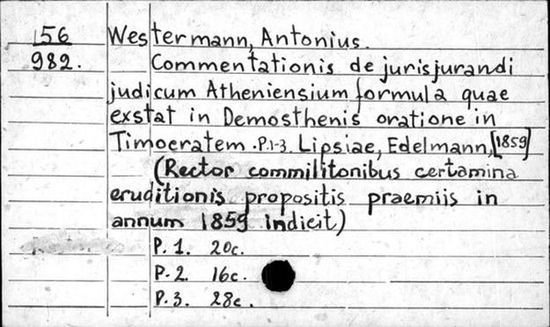 156 Westermann, Antonius.
982. Commentationis de jurisjurandi
judicum Atheniensium formula quae
exstat in Demosthenis oratione in
Timocratem. P.1-3. Lipsiae, Edelmann, [1859]
(Rector commilitonibus certamina
eruditionis propositis praemiis in
annum 1859 indicit)
P. 1. 20c.
P. 2 16c.
P. 3. 28c.